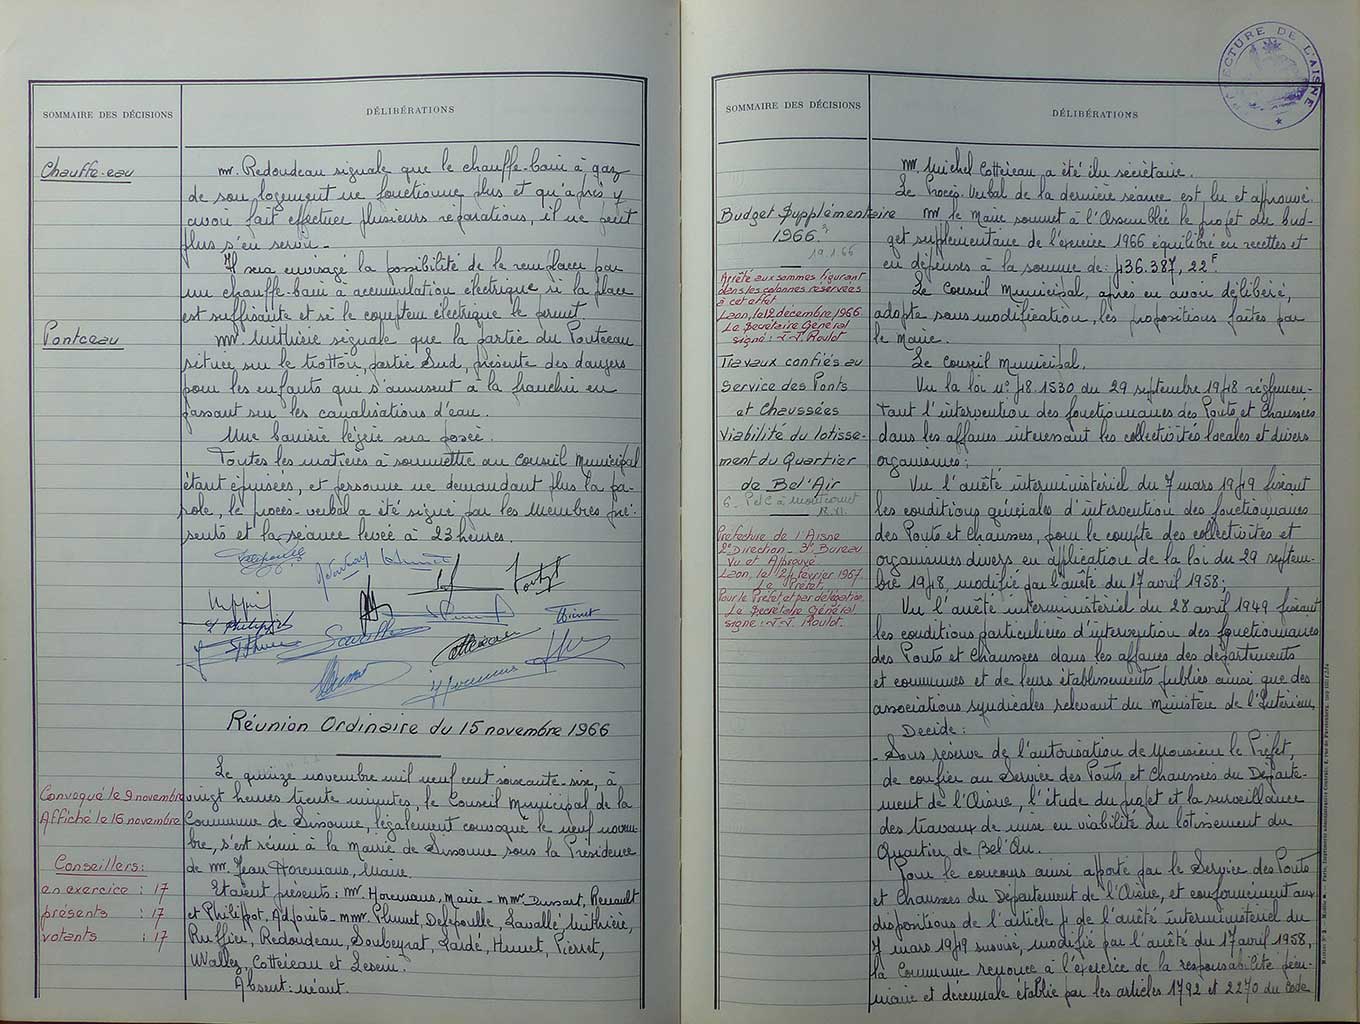 SOMMAIRE DES DÉCISIONS
DÉLIBÉRATIONS
Chauffe-eau
Mr. Redoudeau signale que le chauffe-bain à gaz
de son logement ne fonctionne plus et qu'après y
avoir fait effectuer plusieurs réparations, il ne peut
plus s'en servir.
Il sera envisagé la possibilité de le remplacer par
un chauffe-bain à accumulation électrique, si la place
est suffisante et si le compteur électrique le permet.
Pontceau
Mr. Mithière signale que la partie du Pontceau
située sur le trottoir, partie Sud, présente des dangers
pour les enfants qui s'amusent à la franchir en
passant sur les canalisations d'eau.
Une barrière légère sera posée.
Toutes les matières à soumettre au Conseil Municipal
étant épuisées, et personne ne demandant plus la pa-
role, le procès-verbal a été signé par les Membres pré-
sents et la séance levée à 23 heures.
Réunion Ordinaire du 15 novembre 1966
Convoqué le 9 novembre
Affiché le 16 novembre
Conseillers:
en exercice : 17
présents : 17
votants : 17
Le quinze novembre mil neuf cent soixante-six, à
vingt heures trente minutes, le Conseil Municipal de la
Commune de Sissonne, légalement convoqué le neuf novem-
bre, s'est réuni à la Mairie de Sissonne sous la Présidence
de Mr. Jean Horemans, Maire.
Etaient présents: Mr. Horemans, Maire - MMrs Dussart, Renault
et Philippot, Adjoints - MMrs. Plumet, Defepoulle, Lavallé, Mithière,
Ruffier, Redoudeau, Soubeyrat, Lardé, Huuet, Pierret,
Wallez, Cottereau et Leseur.
Absent: néant.
PRÉFECTURE DE L'AISNE
SOMMAIRE DES DÉCISIONS
DÉLIBÉRATIONS
Mr. Michel Cottereau a été élu sécrétaire.
Le Procès-Verbal de la dernière séance est lu et aprouvé.
Budget Supplémentaire
1966.
19.1.66
Arrêté aux sommes figurant
dans les colonnes réservées
à cet effet
Laon, le 12 décembre 1966
Le Secrétaire Général
signé: J.-J. Roulot
Mr le Maire soumet à l'Assemblée le projet du bud-
get supplémentaire de l'exercice 1966 équilibré en recettes et
en dépenses à la somme de: 436.387,22F.
Le Conseil Municipal, après en avoir délibéré,
adopte sous modification, les propositions faites par
le Maire.
Travaux confiés au
Service des Ponts
et Chaussées
Viabilité du lotisse-
ment du Quartier
de Bel'Air
6. PetC à Montcornet
18.XI.
Préfecture de l'Aisne
2e Direction - 3e Bureau
Vu et Approuvé
Laon, le 24 février 1967
Le Préfet
Pour le Préfet et par délégation
Le Secrétaire Général
signé: J.-J. Roulot.
Le Conseil Municipal.
Vu la loi n° 48.1530 du 29 septembre 1948 réglemen-
tant l'intervention des fonctionnaires des Ponts et Chaussées
dans les affaires interessant les collectivités locales et divers
organismes;
Vu l'arrêté interministériel du 7 mars 1949 fixant
les conditions générales d'intervention des fonctionnaires
des Ponts et Chaussées, pour le compte des collectivités et
organismes divers en application de la loi du 29 septem-
bre 1948, modifié par l'arrêté du 17 avril 1958;
Vu l'arrêté interministériel du 28 avril 1949 fixant
les conditions particulières d'intervention des fonctionnaires
des Ponts et Chaussées dans les affaires des départements
et communes et de leurs établissements publics ainsi que des
associations syndicales relevant du Ministère de l'Intérieur,
Décide:
- Sous réserve de l'autorisation de Monsieur le Préfet,
de confier au Service des Ponts et Chaussées du Départe-
ment de l'Aisne, l'étude du projet et la surveillance
des travaux de mise en viabilité du lotissement du
Quartier de Bel'Air.
Pour le concours ainsi apporté par le Service des Ponts
et Chaussées du Département de l'Aisne, et conformément aux
dispositions de l'article 4 de l'arrêté interministériel du
7 mars 1949 susvisé, modifié par l'arrêté du 17 avril 1958,
la Commune renonce à l'exercice de la responsabilité pécu-
niaire et décennale établie par les articles 1792 et 2270 du Code